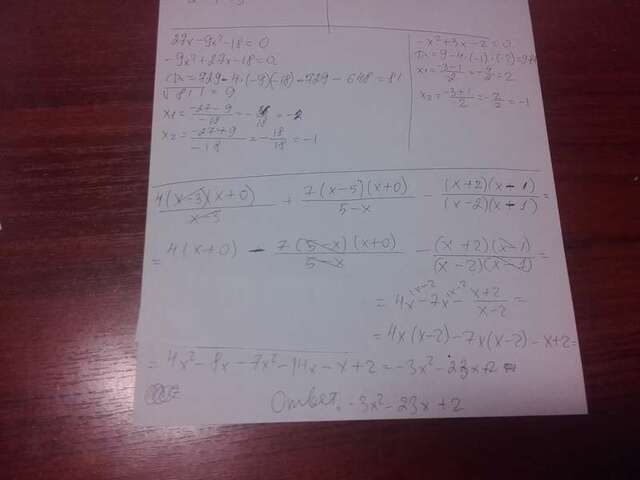 27x-9x²-18=0
-9x²+27x-18=0
D=729-4·(-9)(-18)=729-648=81
√81=9
x₁=(-27-9)/(-18)
x₂=(-27+9)/(-18)=-18/18=-1
-x²+3x-2=0
x₂=(-3+1)/(-2)=-2/2=-1
4(x-3)(x+0)/(x-3) + 7(x-5)(x+0)/(5-x) - (x+2)(x-1)/((x-2)(x-1))=
=4(x+0) - 7(5-x)(x+0)/(5-x) - (x+2)(x-1)/((x-2)(x-1))=
=4x-7x-(x+2)/(x-2)=
=4x(x-2)-7x(x-2)-x+2=
=4x²-8x-7x²-14x-x+2=-3x²-23x+2
Ответ: -3x²-23x+2